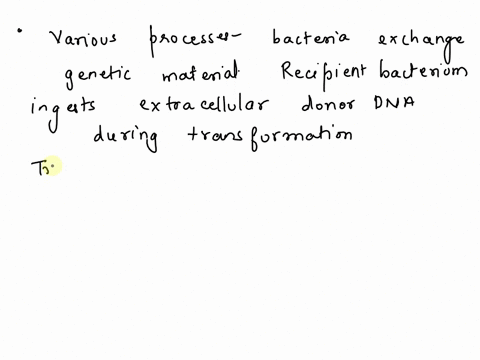 • Various processes- bacteria exchange
genetic material Recipient bacterium
ingests extracellular donor DNA
during transformation
Tr